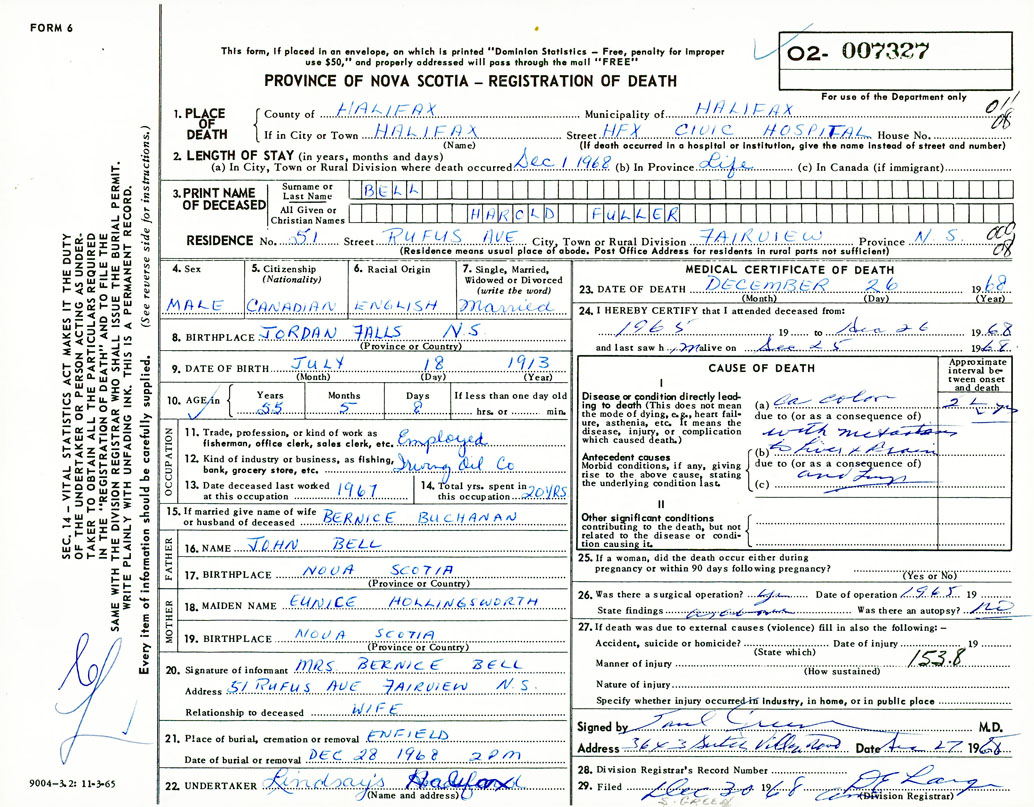 FORM 6
This form, if placed in an envelope, on which is printed "Dominion Statistics – Free, penalty for improper
use $50," and properly addressed will pass through the mail "FREE"
02- 007327
PROVINCE OF NOVA SCOTIA – REGISTRATION OF DEATH
For use of the Department only
011
08
1. PLACE OF DEATH
County of HALIFAX Municipality of HALIFAX
If in City or Town HALIFAX Street HFX CIVIC HOSPITAL House No.
(Name) (If death occurred in a hospital or institution, give the name instead of street and number)
2. LENGTH OF STAY (in years, months and days)
(a) In City, Town or Rural Division where death occurred Dec 1 1968 (b) In Province Life (c) In Canada (if immigrant)
3. PRINT NAME OF DECEASED
Surname or Last Name BELL
All Given or Christian Names HAROLD FULLER
RESIDENCE No. 51 Street RUFUS AVE City, Town or Rural Division FAIRVIEW Province N.S.
08
(Residence means usual place of abode. Post Office Address for residents in rural parts not sufficient)
4. Sex MALE
5. Citizenship (Nationality) CANADIAN
6. Racial Origin ENGLISH
7. Single, Married, Widowed or Divorced (write the word) Married
8. BIRTHPLACE JORDAN FALLS N.S.
(Province or Country)
9. DATE OF BIRTH JULY 18 1913
(Month) (Day) (Year)
10. AGE/in Years 55 Months 5 Days 8 If less than one day old hrs. or min.
OCCUPATION
11. Trade, profession, or kind of work as fisherman, office clerk, sales clerk, etc. Employed
12. Kind of industry or business, as fishing, bank, grocery store, etc. Irving Oil Co
13. Date deceased last worked at this occupation 1967
14. Total yrs. spent in this occupation 20 YRS
15. If married give name of wife or husband of deceased BERNICE BUCHANAN
FATHER
16. NAME JOHN BELL
17. BIRTHPLACE NOVA SCOTIA
(Province or Country)
MOTHER
18. MAIDEN NAME EUNICE HOLLINGSWORTH
19. BIRTHPLACE NOVA SCOTIA
(Province or Country)
20. Signature of informant MRS. BERNICE BELL
Address 51 RUFUS AVE FAIRVIEW N.S.
Relationship to deceased WIFE
21. Place of burial, cremation or removal ENFIELD
Date of burial or removal DEC 28 1968 2PM
22. UNDERTAKER Lindsay's Halifax
(Name and address)
MEDICAL CERTIFICATE OF DEATH
23. DATE OF DEATH DECEMBER 26 1968
(Month) (Day) (Year)
24. I HEREBY CERTIFY that I attended deceased from:
1965 19 to Dec 26 1968
and last saw him alive on Dec 25 1968
CAUSE OF DEATH
Approximate interval between onset and death
I
Disease or condition directly leading to death (This does not mean the mode of dying, e.g., heart failure, asthenia, etc. It means the disease, injury, or complication which caused death.)
(a) Ca colon
due to (or as a consequence of)
with metastases
Antecedent causes
Morbid conditions, if any, giving rise to the above cause, stating the underlying condition last.
(b) to liver & Brain
due to (or as a consequence of)
(c) and lungs
II
Other significant conditions contributing to the death, but not related to the disease or condition causing it.
25. If a woman, did the death occur either during
pregnancy or within 90 days following pregnancy?
(Yes or No)
26. Was there a surgical operation? yes Date of operation 1965 19
State findings Was there an autopsy? no
27. If death was due to external causes (violence) fill in also the following:–
Accident, suicide or homicide? Date of injury 19
(State which)
Manner of injury 153.8
(How sustained)
Nature of injury
Specify whether injury occurred in industry, in home, or in public place
Signed by M.D.
Address Date Dec 27 1968
28. Division Registrar's Record Number
29. Filed Dec 30 1968
(Division Registrar)
S. GREEN
SEC. 14 – VITAL STATISTICS ACT MAKES IT THE DUTY
OF THE UNDERTAKER OR PERSON ACTING AS UNDER-
TAKER TO OBTAIN ALL THE PARTICULARS REQUIRED
IN THE "REGISTRATION OF DEATH" AND TO FILE THE
SAME WITH THE DIVISION REGISTRAR WHO SHALL ISSUE THE BURIAL PERMIT.
WRITE PLAINLY WITH UNFADING INK. THIS IS A PERMANENT RECORD.
Every item of information should be carefully supplied. (See reverse side for instructions.)
9004–3.2: 11-3-65